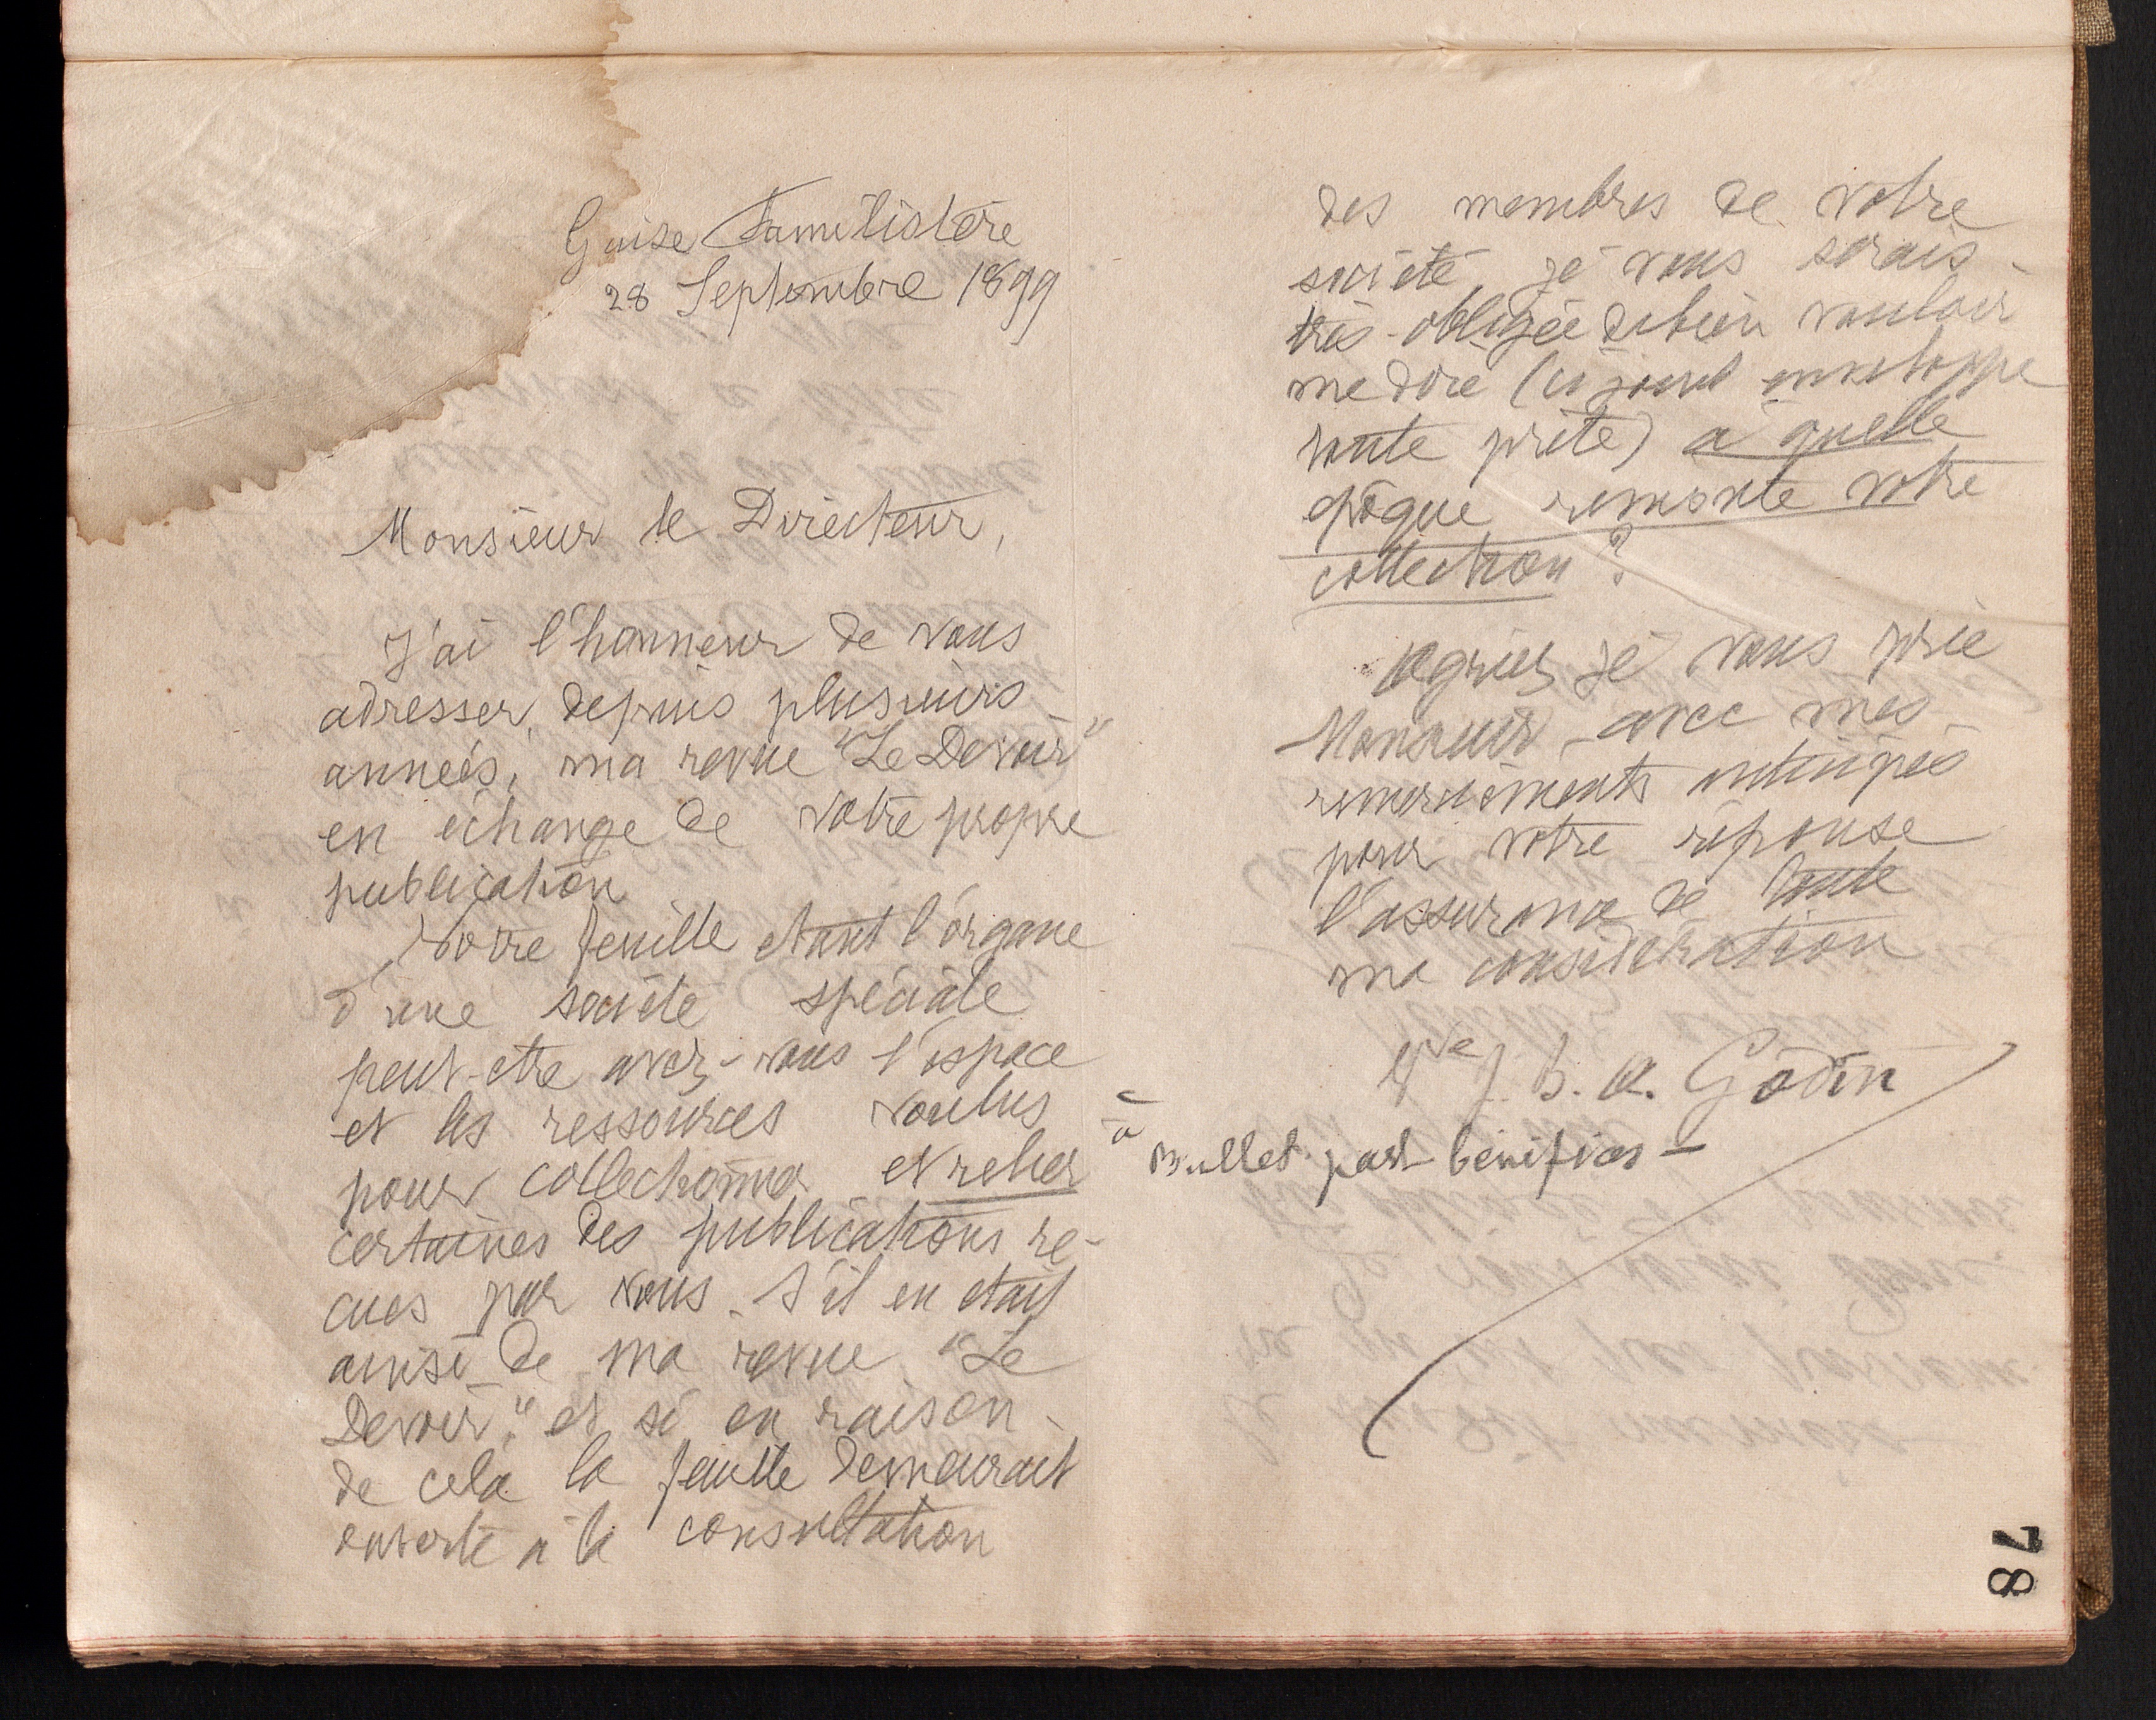 Guise Familistère
28 Septembre 1899
Monsieur le Directeur,
J'ai l'honneur de vous
adresser, depuis plusieurs
années, ma revue "Le Devoir"
en échange de votre propre
publication
Votre feuille étant l'organe
d'une société spéciale
peut-être avez-vous l'espace
et les ressources voulus
pour collectionner et relier
certaines des publications re-
çues par vous. S'il en était
ainsi de ma revue "Le
Devoir," et si en raison
de cela la feuille demeurait
ouverte à la consultation
des membres de votre
société je vous serais
très-obligée de bien vouloir
me dire (ci-joint enveloppe
toute prête) à quelle
époque remonte votre
collection ?
Agréez je vous prie
Monsieur, avec mes
remerciements anticipés
pour votre réponse
l'assurance de toute
ma considération
Vve J. B. A. Godin
à Bullet. part. bénéfices -
78